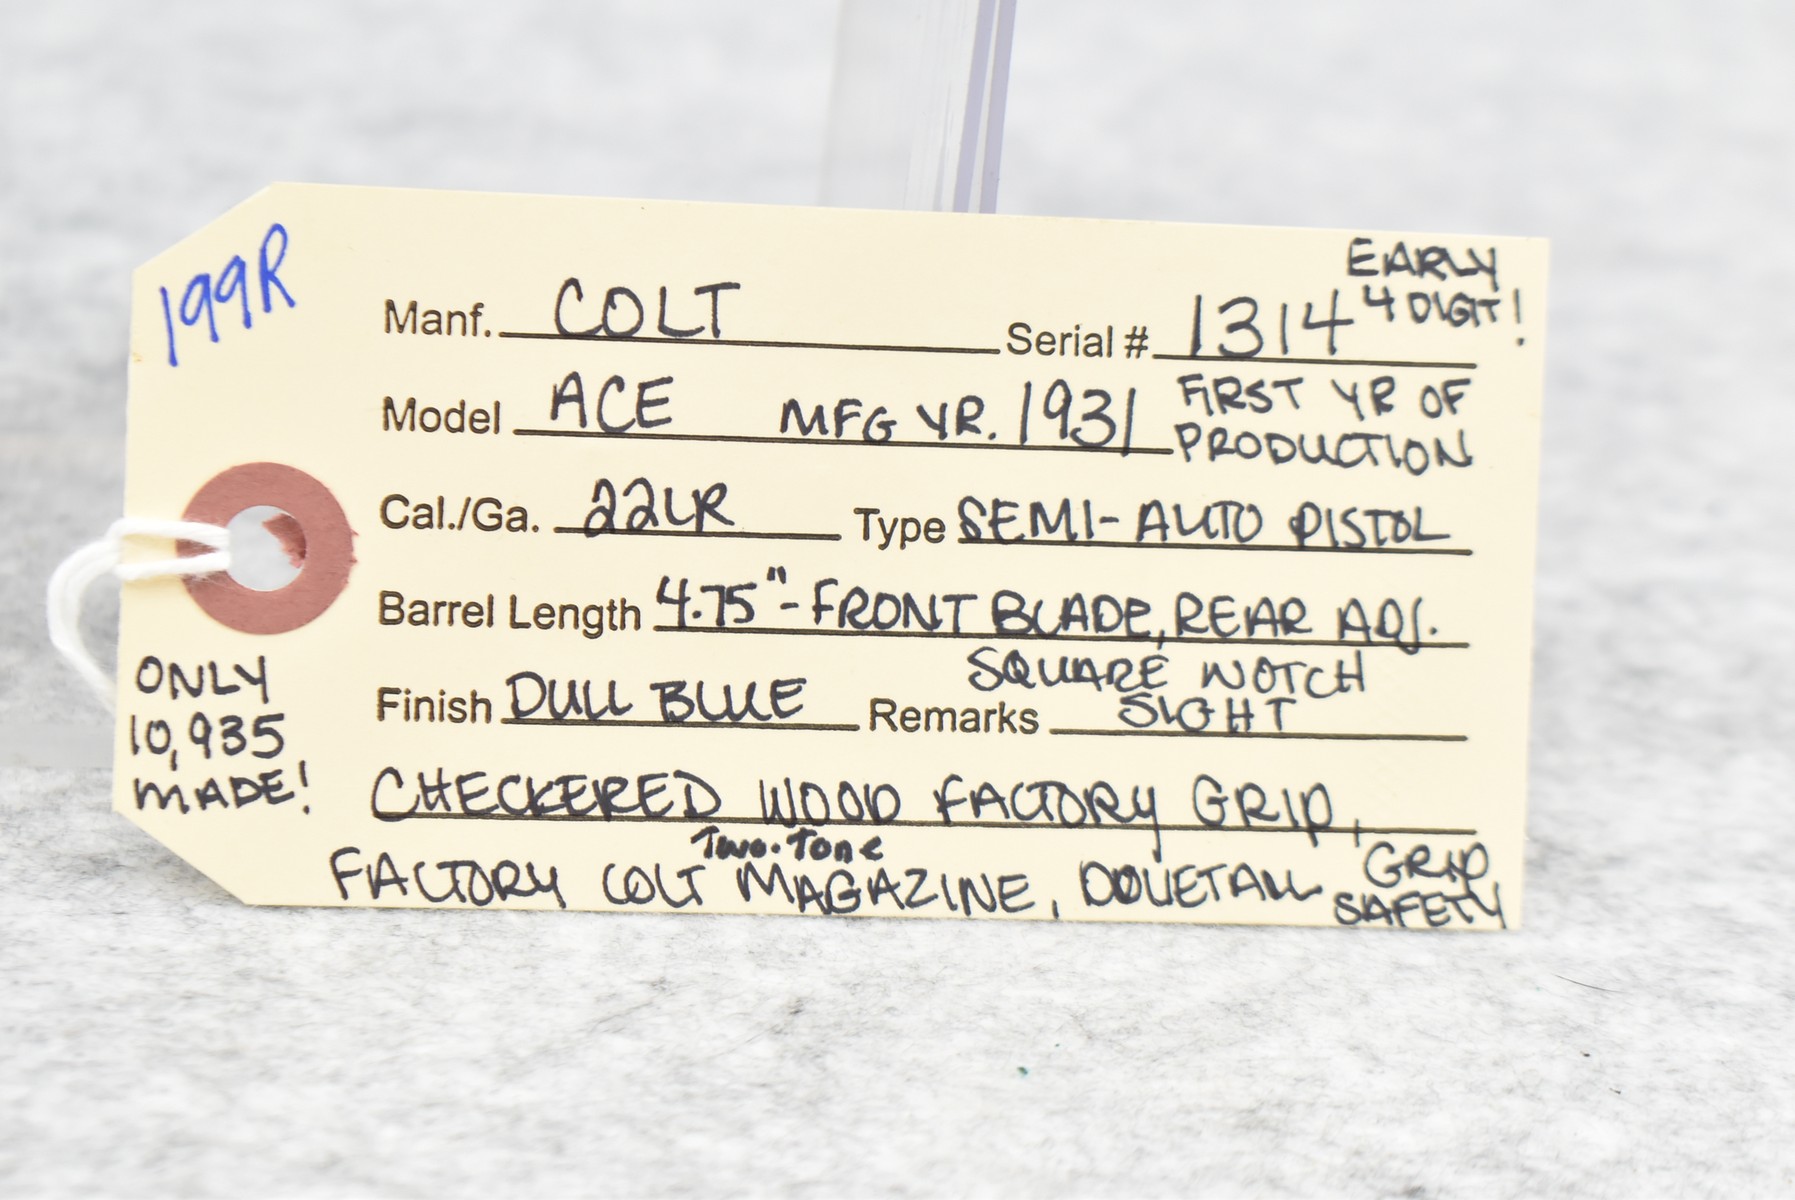 199R
EARLY
Manf. COLT Serial # 1314 4 DIGIT!
Model ACE MFG YR. 1931 FIRST YR OF
PRODUCTION
Cal./Ga. 22LR Type SEMI-AUTO PISTOL
Barrel Length 4.75"-FRONT BLADE, REAR ADJ.
SQUARE NOTCH
Finish DULL BLUE Remarks SIGHT
ONLY
10,935
MADE!
CHECKERED WOOD FACTORY GRIP,
Two-Tone
FACTORY COLT MAGAZINE, DOVETAIL GRIP
SAFETY